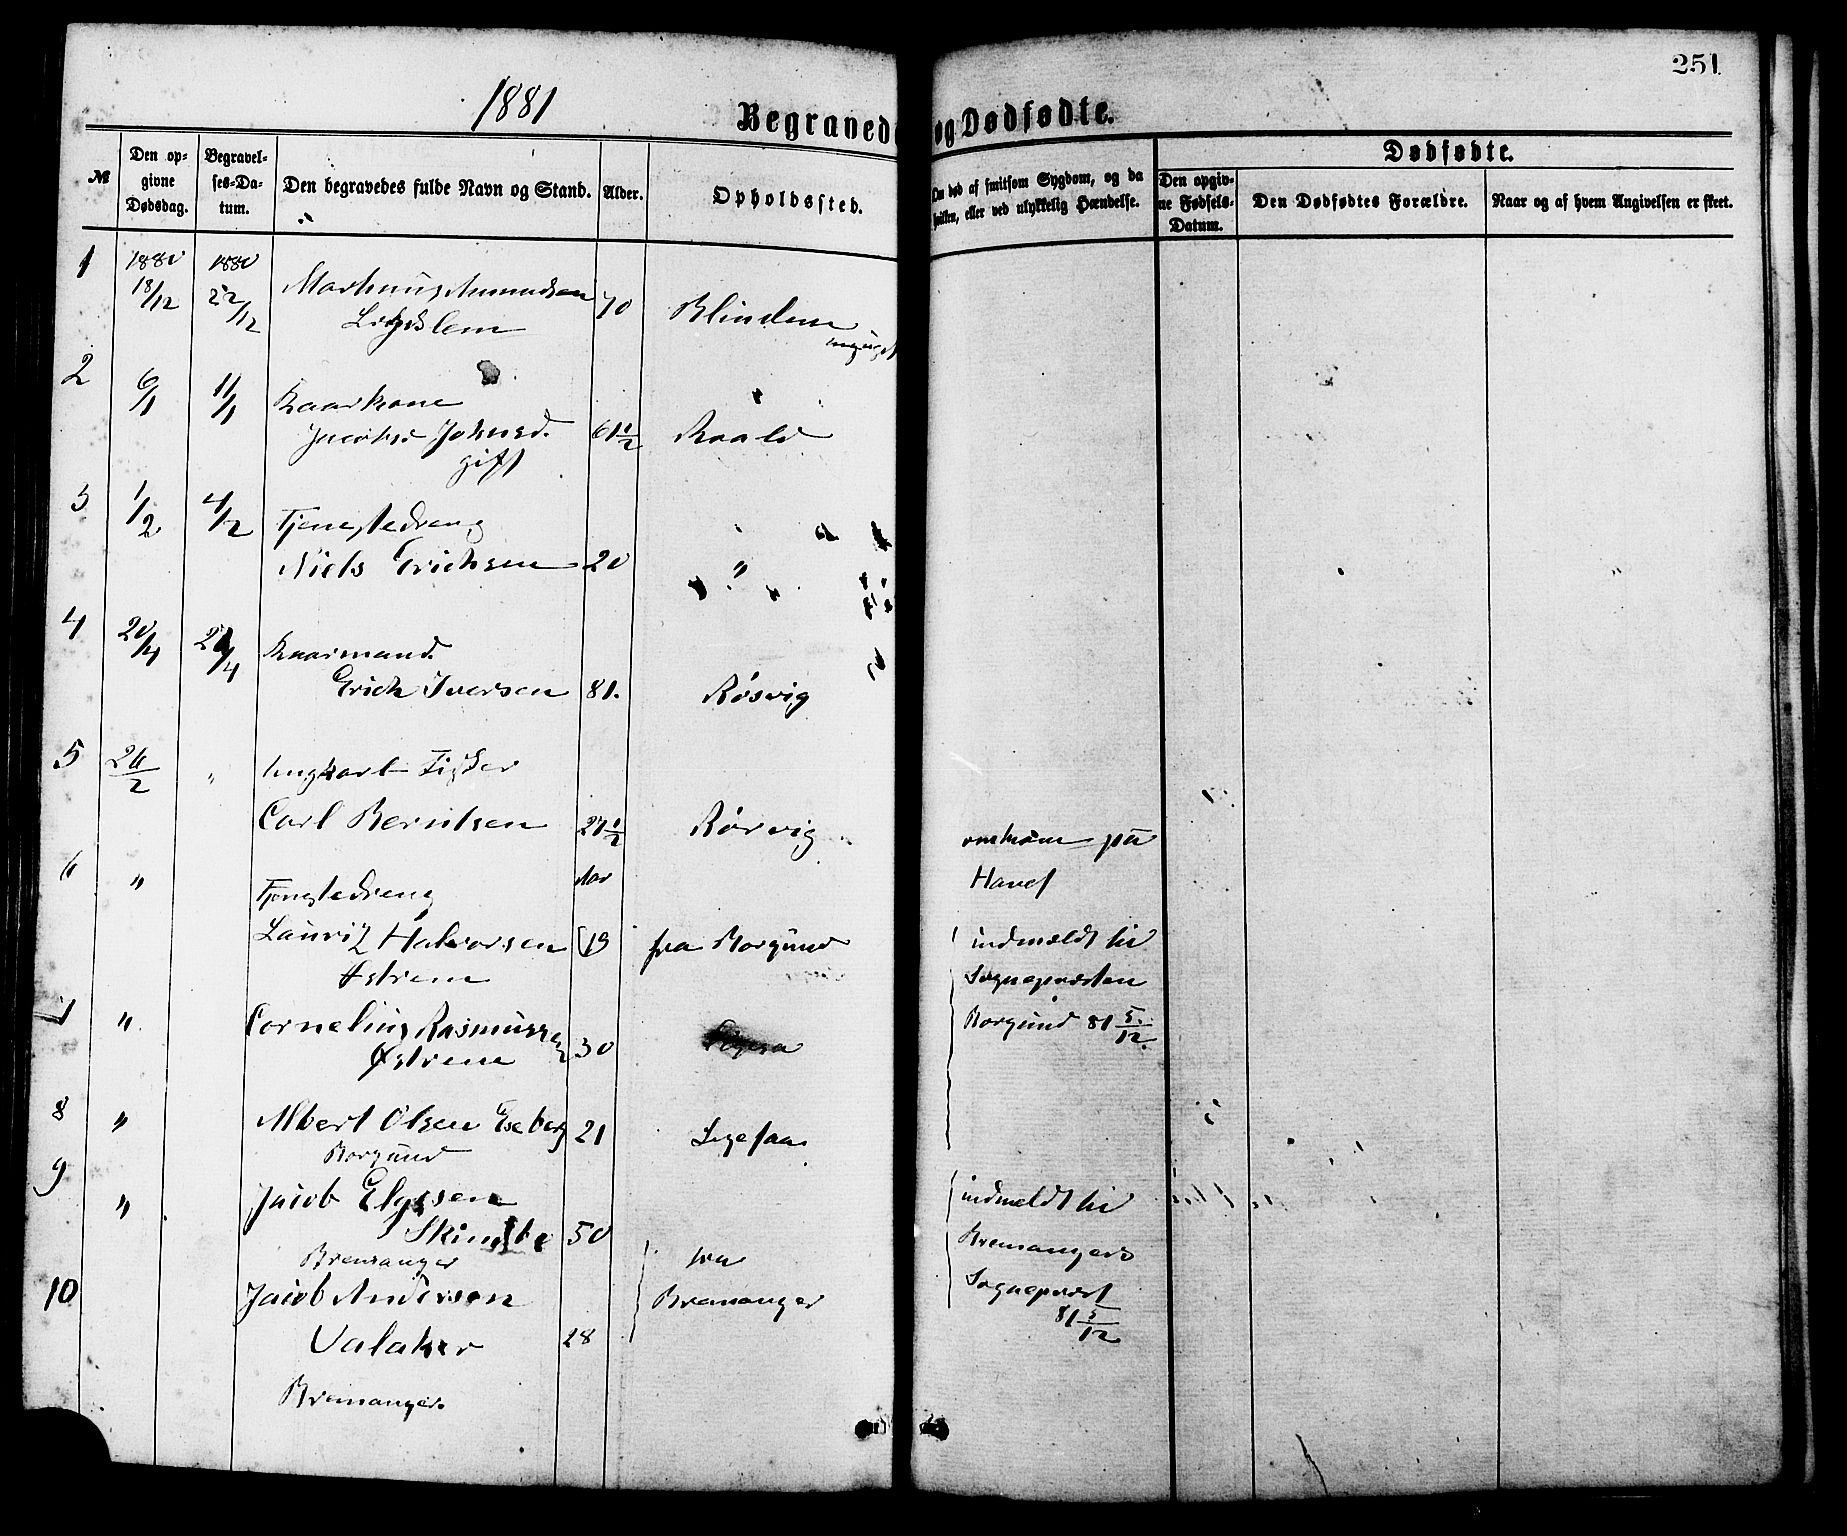 251
1881
Begravede og Dødfødte.
№
Den opgivne Dødsdag.
Begravelses-Datum.
Den begravedes fulde Navn og Stand.
Alder.
Opholdssted.
Om død af smitsom Sygdom, og da hvilken, eller ved ulykkelig Hændelse.
Dødfødte.
Den opgivne Fødsels-Datum.
Den Dødfødtes Forældre.
Naar og af hvem Angivelsen er skeet.
1 1880 1880
18/12 22/12 Markus Amundsen 70 Blindem
2 6/1 11/1 Kaarkone
Johnsd. 61 1/2 Roald
gift
3 1/2 4/2 Tjenestedreng
Niels Erichsen 20 "
4 20/4 /4 Kaarmand.
Erich Iversen 81. Røsvig
5 26/2 " Ungkarl Fisker
Carl Berntsen 27 1/2 Rørvig omkom på
6 " Tjenestedreng Aar Havet
Lauritz Halvorsen 19 fra Borgund indmeldt til
Østrem Sognepresten
7 " Cornelius Rasmussen 30 Borgund 81 5/12.
Østrem
8 " Albert Olsen Eseberg 21
Borgund
9 " Jacob Elgsen indmeldt til
50 Bremangers
Bremanger fra
10 Jacob Andersen Bremanger Sogneprest
81 5/12
Valaker 28
Bremanger.